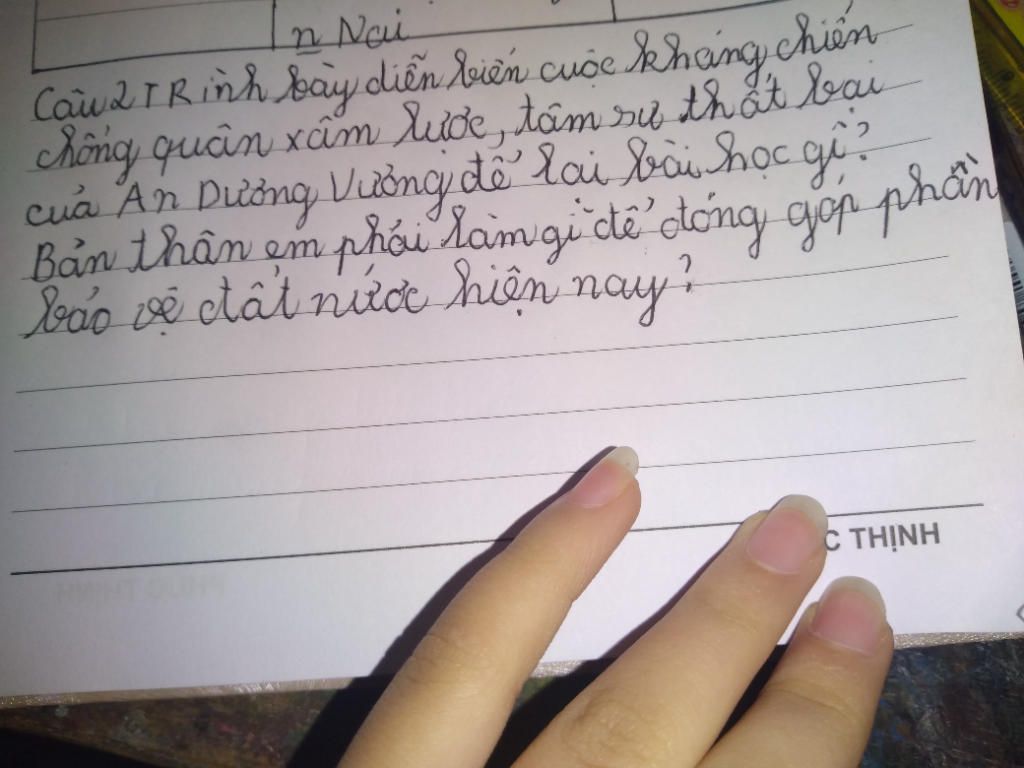 n Nai
Câu 2 TRình bày diễn biến cuộc kháng chiến
chống quân xâm lược, tâm sự thất bại
của An Dương Vương để lại bài học gì?
Bản thân em phải làm gì để đóng góp phần
bảo vệ đất nước hiện nay?
C THỊNH